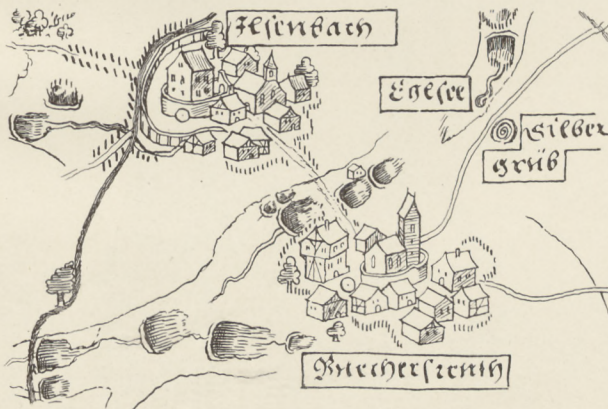 Ilſenbach
Eglſee
Silber
grüb
Puecherſreuth